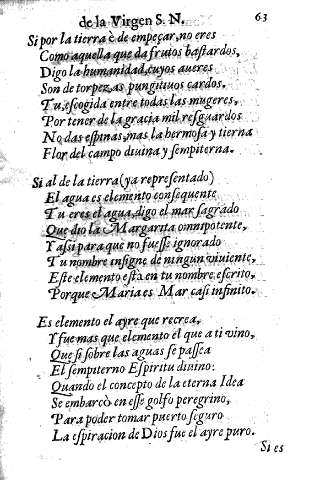 de la Virgen S. N. 63
Si por la tierra è de empeçar, no eres
Como aquella que da frutos bastardos,
Digo la humanidad, cuyos averes
Son de torpezas pungitivos cardos.
Tu, escogida entre todas las mugeres,
Por tener de la gracia mil resguardos
No das espinas, mas la hermosa y tierna
Flor del campo diuina y sempiterna.
Si al de la tierra (ya representado)
El agua es elemento consequente
Tu eres el agua, digo el mar sagrado
Que dio la Margarita omnipotente,
Y assi para que no fuesse ignorado
Tu nombre insigne de ningun viuiente,
Este elemento està en tu nombre escrito,
Porque Maria es Mar casi infinito.
Es elemento el ayre que recrea,
Y fue mas que elemento el que a ti vino,
Que si sobre las aguas se passea
El sempiterno Espiritu diuino:
Quando el concepto de la eterna Idea
Se embarcò en esse golfo peregrino,
Para poder tomar puerto seguro
La espiracion de Dios fue el ayre puro.
Si es